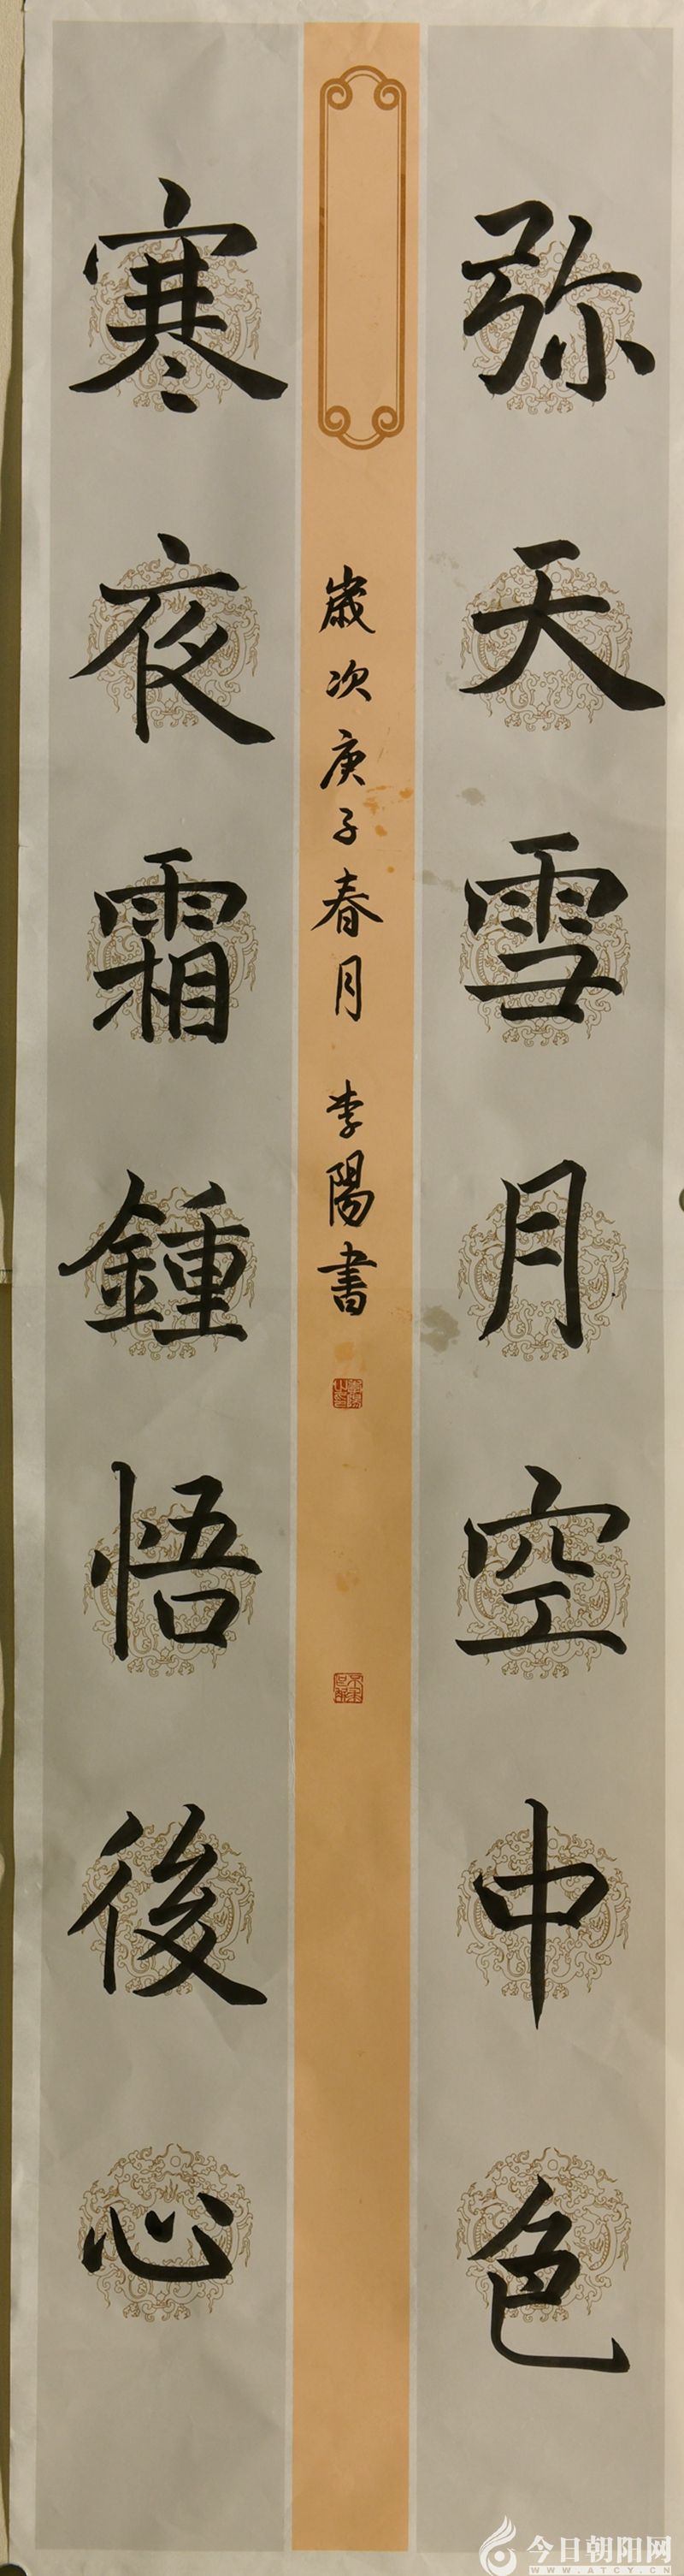 弥天雪月空中色
歳次庚子春月 李陽書
寒夜霜鍾悟後心
今日朝阳网
WWW.ATCY.COM